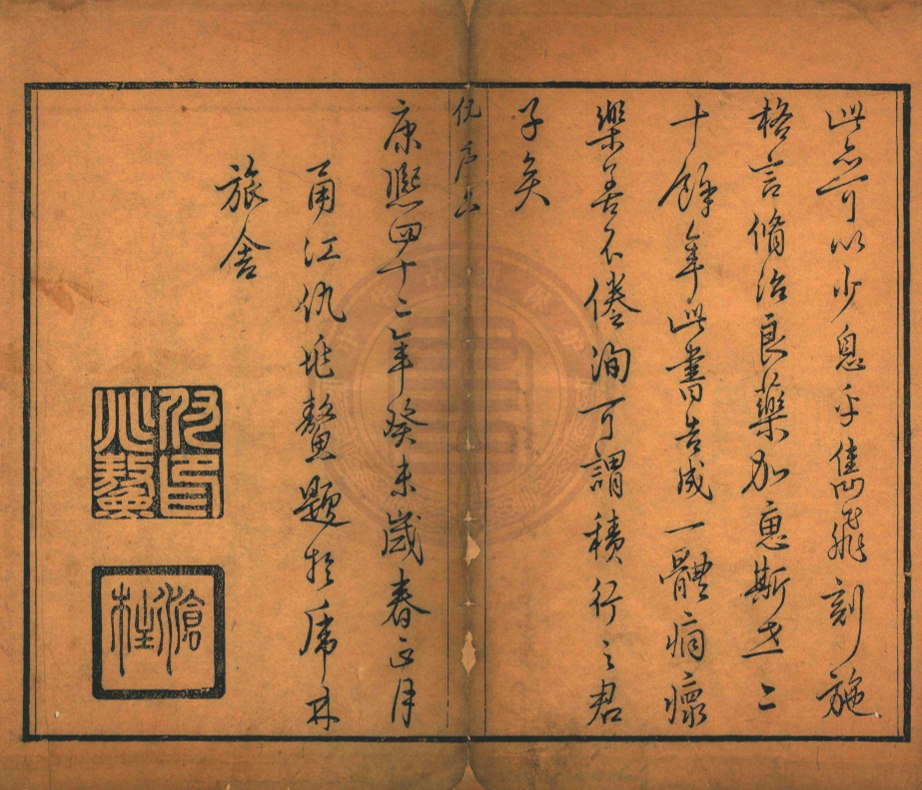 此亦可以少息乎雋飛刻施
格言脩治良藥加惠斯世二
十餘年此書告成一體痌瘝
樂善不倦洵可謂積行之君
子矣
仇序
康熙四十二年癸未歲春正月
甬江仇兆鰲題於虎林
旅舍
仇印
兆鰲
滄柱